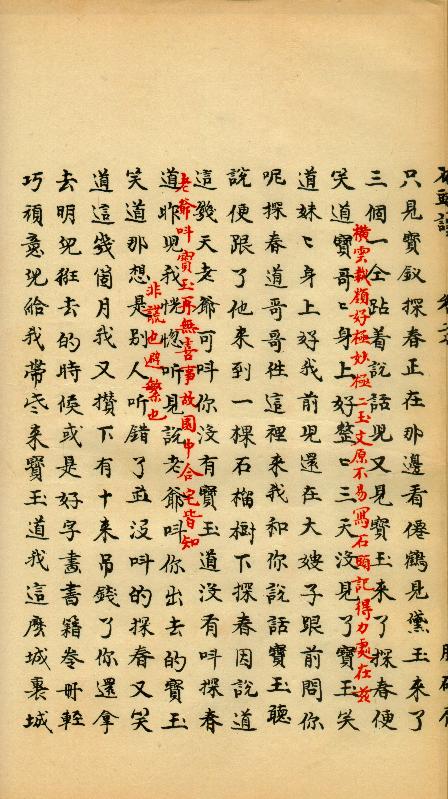 只見寶釵探春正在那邊看僊鶴見黛玉來了
三個一仝跕着說話兒又見寶玉來了探春便
橫雲截嶺好極妙極二玉文原不易寫石頭記得力處在茲
笑道寶哥〻身上好整〻三天沒見了寶玉笑
道妹〻身上好我前兒還在大嫂子跟前問你
呢探春道哥哥徃這裡來我和你說話寶玉聽
說便跟了他來到一棵石榴樹下探春因說道
這幾天老爺可叫你沒有寶玉道沒有叫探春
老爺叫寶玉再無喜事故園中合宅皆知
道昨兒我恍惚听見說老爺叫你出去的寶玉
非謊也避繁也
笑道那想是別人听錯了並沒叫的探春又笑
道這幾個月我又攢下有十來吊錢了你還拿
去明兒徃去的時候或是好字畫書籍卷冊輕
巧頑意兒給我帶些來寶玉道我這麼城裏城